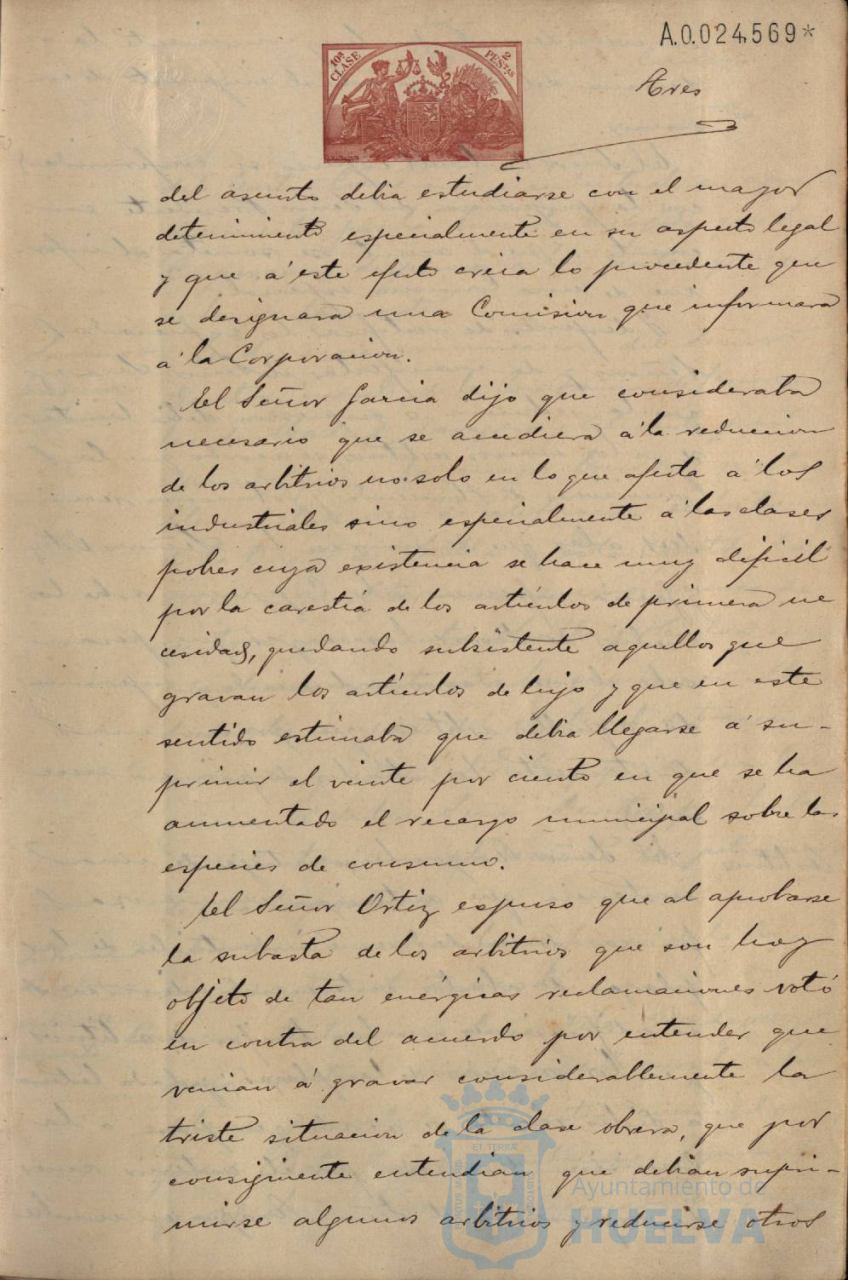 A.0.024,569*
10ª CLASE
2 PESTAS
Tres
del asunto debia estudiarse con el mayor
detenimiento especialmente en su aspecto legal
y que á este efecto creia lo procedente que
se designara una Comision que informara
á la Corporacion.
El Señor Garcia dijo que consideraba
necesario que se accediera á la reduccion
de los arbitrios no solo en lo que afecta á los
industriales sino especialmente á las clases
pobres cuya existencia se hace muy dificil
por la carestiá de los artículos de primera ne
cesidad, quedando subsistente aquellos que
gravan los artículos de lujo y que en este
sentido estimaba que debia llegarse á su-
primir el veinte por ciento en que se ha
aumentado el recargo municipal sobre las
especies de consumo.
El Señor Ortiz expuso que al aprobarse
la subasta de los arbitrios que son hoy
objeto de tan enérgicas reclamaciones votó
en contra del acuerdo por entender que
venian á gravar considerablemente la
triste situacion de la clase obrera, que por
consiguiente entendian que debian supri-
mirse algunos arbitrios y reducirse otros
Ayuntamiento de
HUELVA